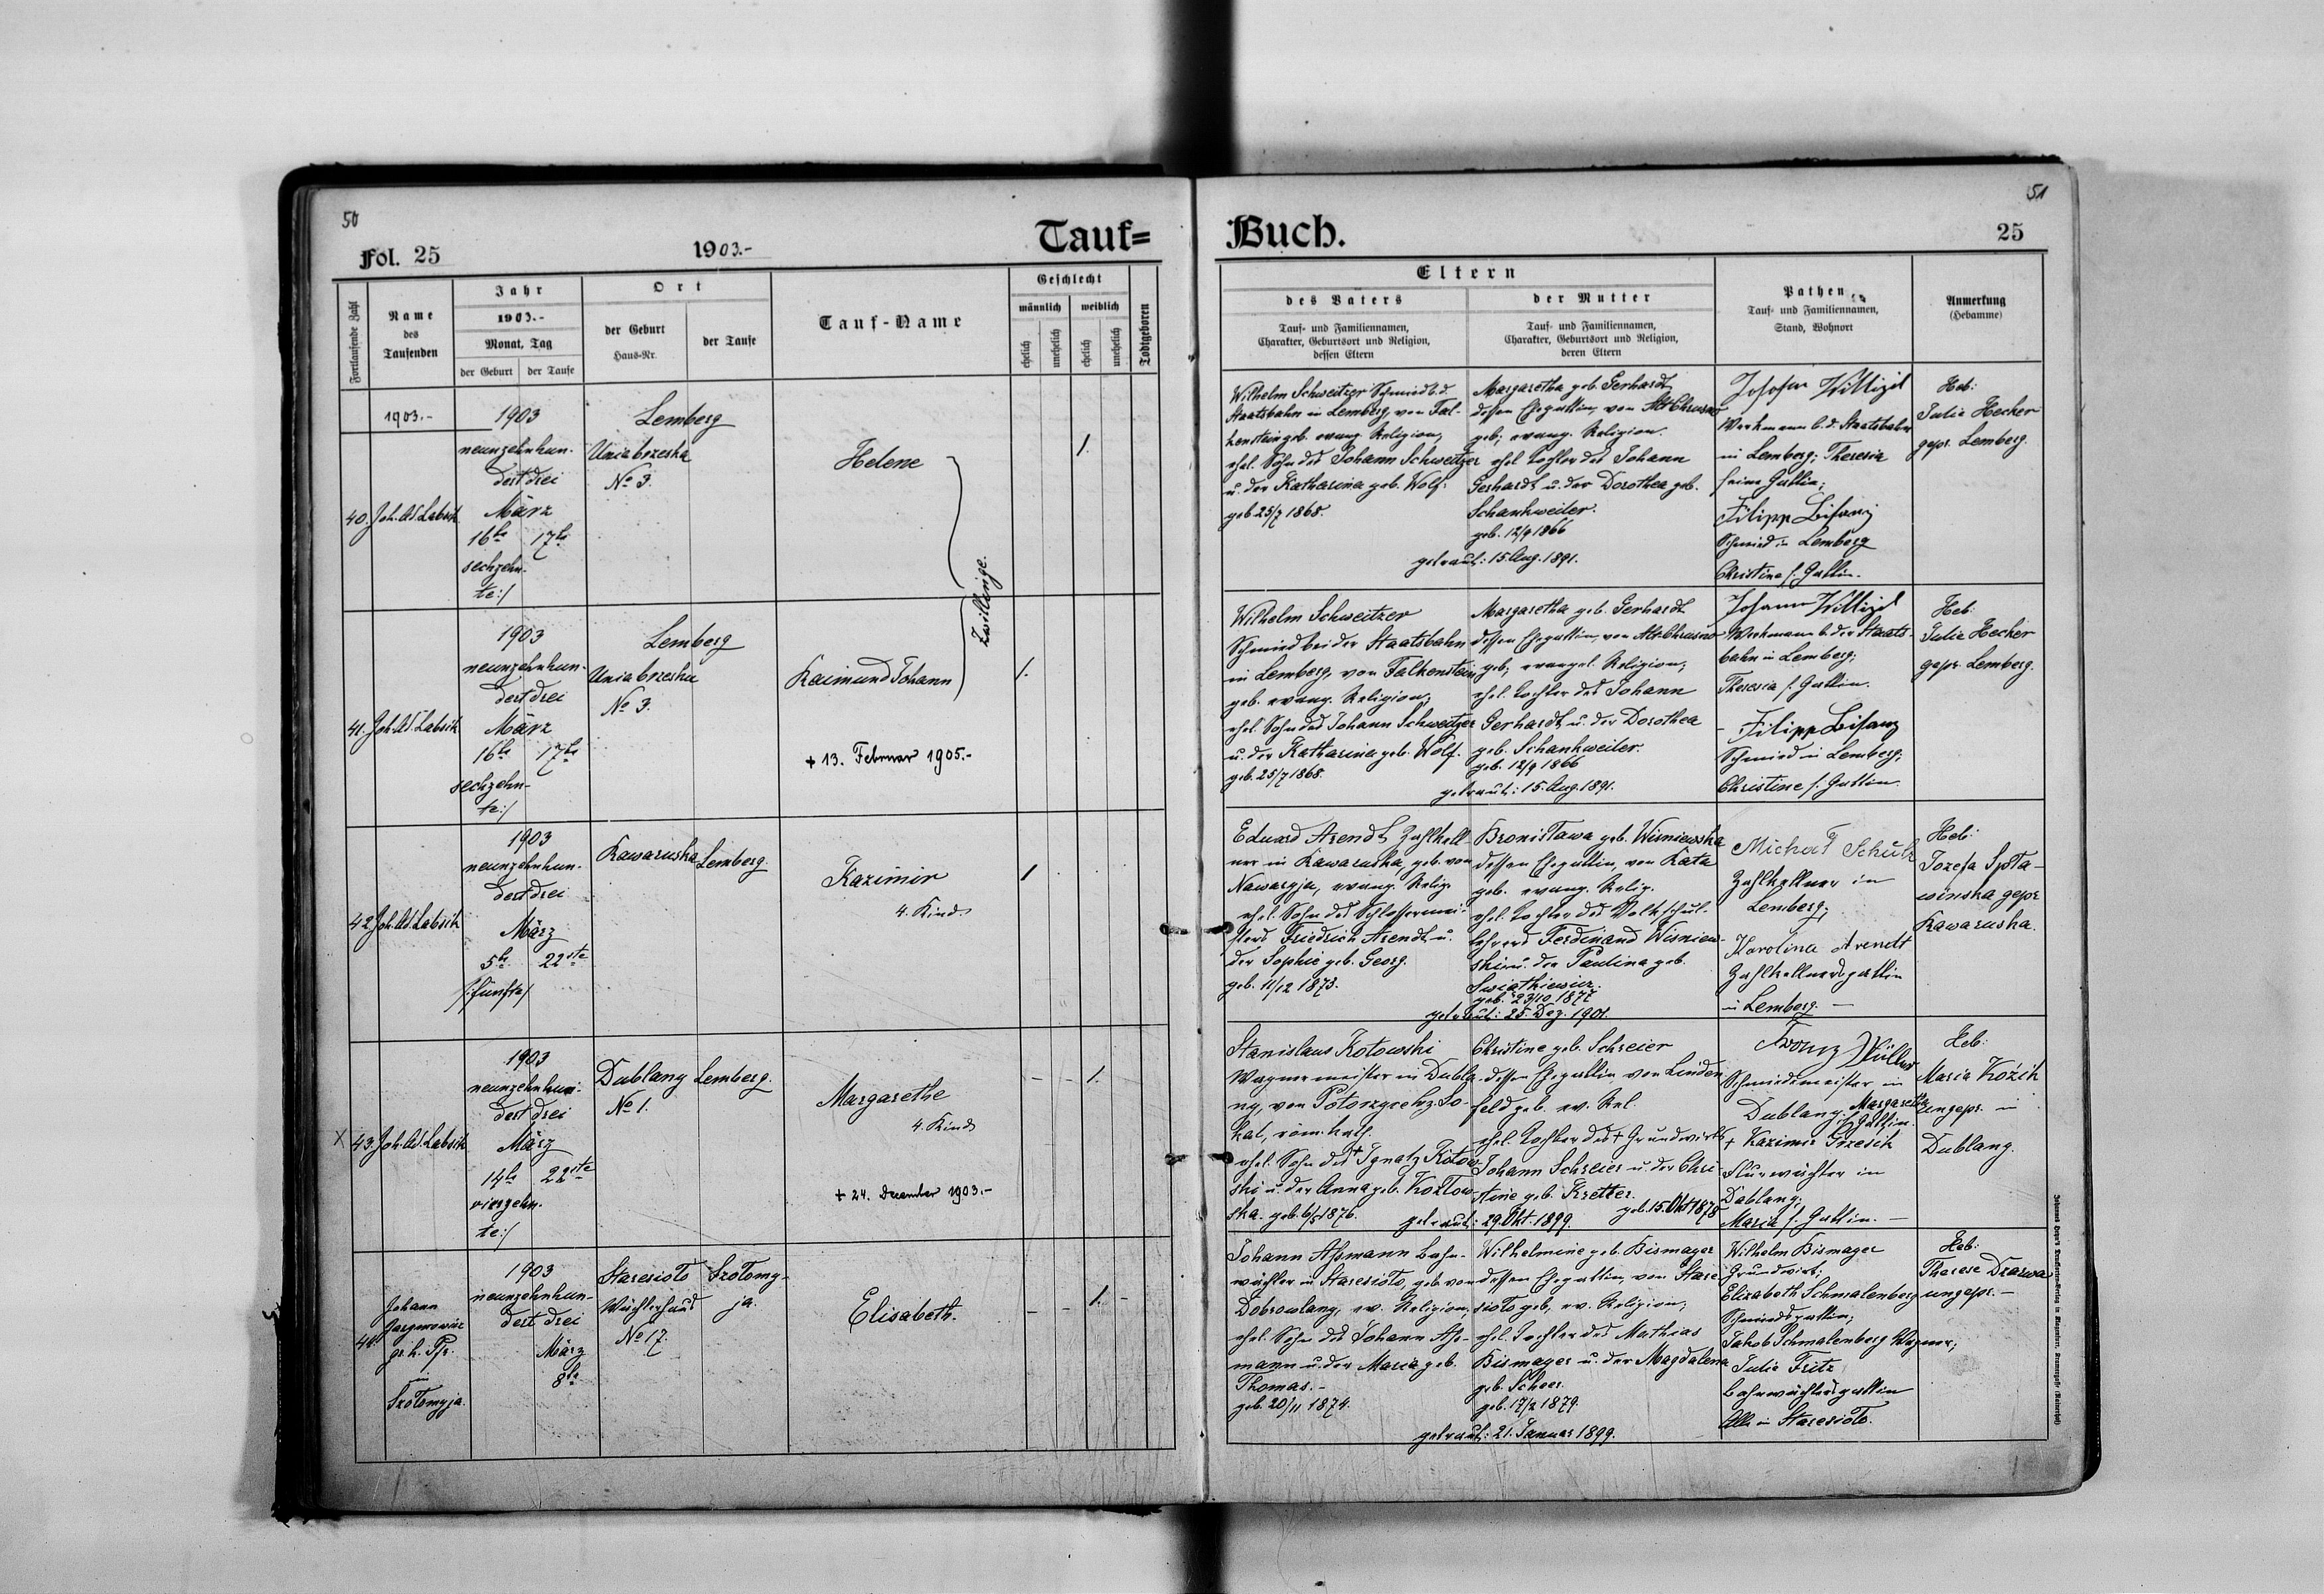 50
Fol. 25
1903.-
Tauf=
Fortlaufende Zahl
Name
des
Taufenden
Jahr
1903.-
Monat, Tag
der Geburt
der Taufe
Ort
der Geburt
Haus-Nr.
der Taufe
Tauf-Name
Geschlecht
männlich
weiblich
ehelich
unehelich
ehelich
unehelich
Todtgeboren
1903.-
40.
Joh. Ad. Labsik
1903
neunzehnhun-
dert drei
März
16te 17te
sechzehn-
te:/
Lemberg
Uniabrzeska
No 3.
Helene
1.
Zwillinge.
41.
Joh. Ad. Labsik
1903
neunzehnhun-
dert drei
März
16te 17te
sechzehn-
te:/
Lemberg
Uniabrzeska
No 3.
Raimund Johann
+ 13. Februar 1905.-
1.
42.
Joh. Ad. Labsik
1903
neunzehnhun-
dert drei
März
5te 22ste
/:fünfte/
Rawaruska
Lemberg.
Kazimir
4. Kind.
1
X 43.
Joh. Ad. Labsik
1903
neunzehnhun-
dert drei
März
14te 22ste
vierzehn-
te:/
Dublany
No 1.
Lemberg.
Margarethe
4. Kind
+ 24. December 1903.-
- - 1.
44.
Johann
gr. k. Pfr.
in
Szołomyja.
1903
neunzehnhun-
dert drei
März
8te
Staresioło
Wächterhaus
No 17.
Szołomy-
ja.
Elisabeth.
- - 1. -
51
Buch.
25
Eltern
des Vaters
Tauf- und Familiennamen,
Charakter, Geburtsort und Religion,
dessen Eltern
der Mutter
Tauf- und Familiennamen,
Charakter, Geburtsort und Religion,
deren Eltern
Pathen
Tauf- und Familiennamen,
Stand, Wohnort
Anmerkung
(Hebamme)
Wilhelm Schweitzer Schmied b. d.
Staatsbahn in Lemberg, von Fal-
kenstein geb. evang. Religion,
ehel. Sohn des Johann Schweitzer
u. der Katharina geb. Wolf.
geb. 25/7 1868.
Margaretha geb. Gerhardt
dessen Ehegattin, von Alt Chrusno
geb; evang. Religion.
ehel. Tochter des Johann
Gerhardt u. der Dorothea geb.
Schankweiler.
geb. 12/9 1866
getraut: 15. Aug. 1891.
Werkmann b. d. Staatsbahn
in Lemberg; Theresia
seine Gattin;
Filipp Bisanz
Schmied in Lemberg
Christine s. Gattin.
Heb:
Julie Hecker
gepr. Lemberg.
Wilhelm Schweitzer
Schmied bei der Staatsbahn
in Lemberg, von Falkenstein
geb. evang. Religion,
ehel. Sohn des Johann Schweitzer
u. der Katharina geb. Wolf.
geb. 25/7 1868.
Margaretha geb. Gerhardt
dessen Ehegattin, von Alt Chrusno
geb; evangel. Religion;
ehel. Tochter des Johann
Gerhardt u. der Dorothea
geb. Schankweiler.
geb. 12/9 1866
getraut: 15. Aug. 1891.
Johann Willigel
Werkmann b. der Staats-
bahn in Lemberg;
Theresia s. Gattin.
- Filipp Bisanz
Schmied in Lemberg;
Christine s. Gattin.
Heb:
Julie Hecker
gepr. Lemberg.
Eduard Arendt Zahlkell-
ner in Rawaruska, geb. von
Nawaryja, evang. Relig.
ehel. Sohn des Schlossermei-
sters Friedrich Arendt u.
der Sophie geb. Georg.
geb. 11/12 1873.
Bronisława geb. Wisniewska
dessen Ehegattin, von
geb. evang. Relig.
ehel. Tochter des Volksschul-
lehrers Ferdinand Wisniew-
ski u. der Paulina geb.
Swiathiewicz.
geb. 23/10 1877
getraut: 25. Dez. 1901.
Michał Schulz
Zahlkellner in
Lemberg;
Karolina Arendt
Zahlkellnersgattin
in Lemberg. -
Heb:
Jozefa Spła-
winska gepr.
Rawaruska.
Stanislaus Kotowski
Wagnermeister in Dubla-
ny, von
kat, röm. kath.
ehel. Sohn des + Ignatz Kotow-
ski u. der Anna geb. Kozłow-
ska. geb. 6/5 1876.
Christine geb. Schreier
dessen Ehegattin von Linden-
feld geb. ev. Rel.
ehel. Tochter des + Grundwirts
Johann Schreier u. der Chri-
stine geb. Kretter.
geb. 15. Okt 1878
getraut: 29. Okt. 1899.
Franz Müller
Schmiedemeister in
Dublany. Margaretha
s. Gattin.
+ Kazimir Grzesik
Flurwächter in
Dublany;
Maria s. Gattin. -
Heb:
Maria Kozik
ungepr. in
Dublany.
Johann Aßmann Bahn-
wächter in Staresioło, geb. von
Dobrowlany, ev. Religion;
ehel. Sohn des Johann Aß-
mann u. der Maria geb.
Thomas.-
geb. 20/11 1874.
Wilhelmine geb. Bismayer
dessen Ehegattin, von Stare-
sioło geb, ev. Religion;
ehel. Tochter des Mathias
Bismayer u. der Magdalena
geb. Scheer.
geb. 17/2 1879.
getraut: 21. Januar 1899.
Wilhelm Bismayer
Grundwirt;
Elisabeth Schmalenberg
Schmiedsgattin;
Jakob Schmalenberg Wagner;
Julie Fritz
Bahnwächtersgattin
Alle in Staresioło.
Heb:
Therese Drzewa
ungepr. -